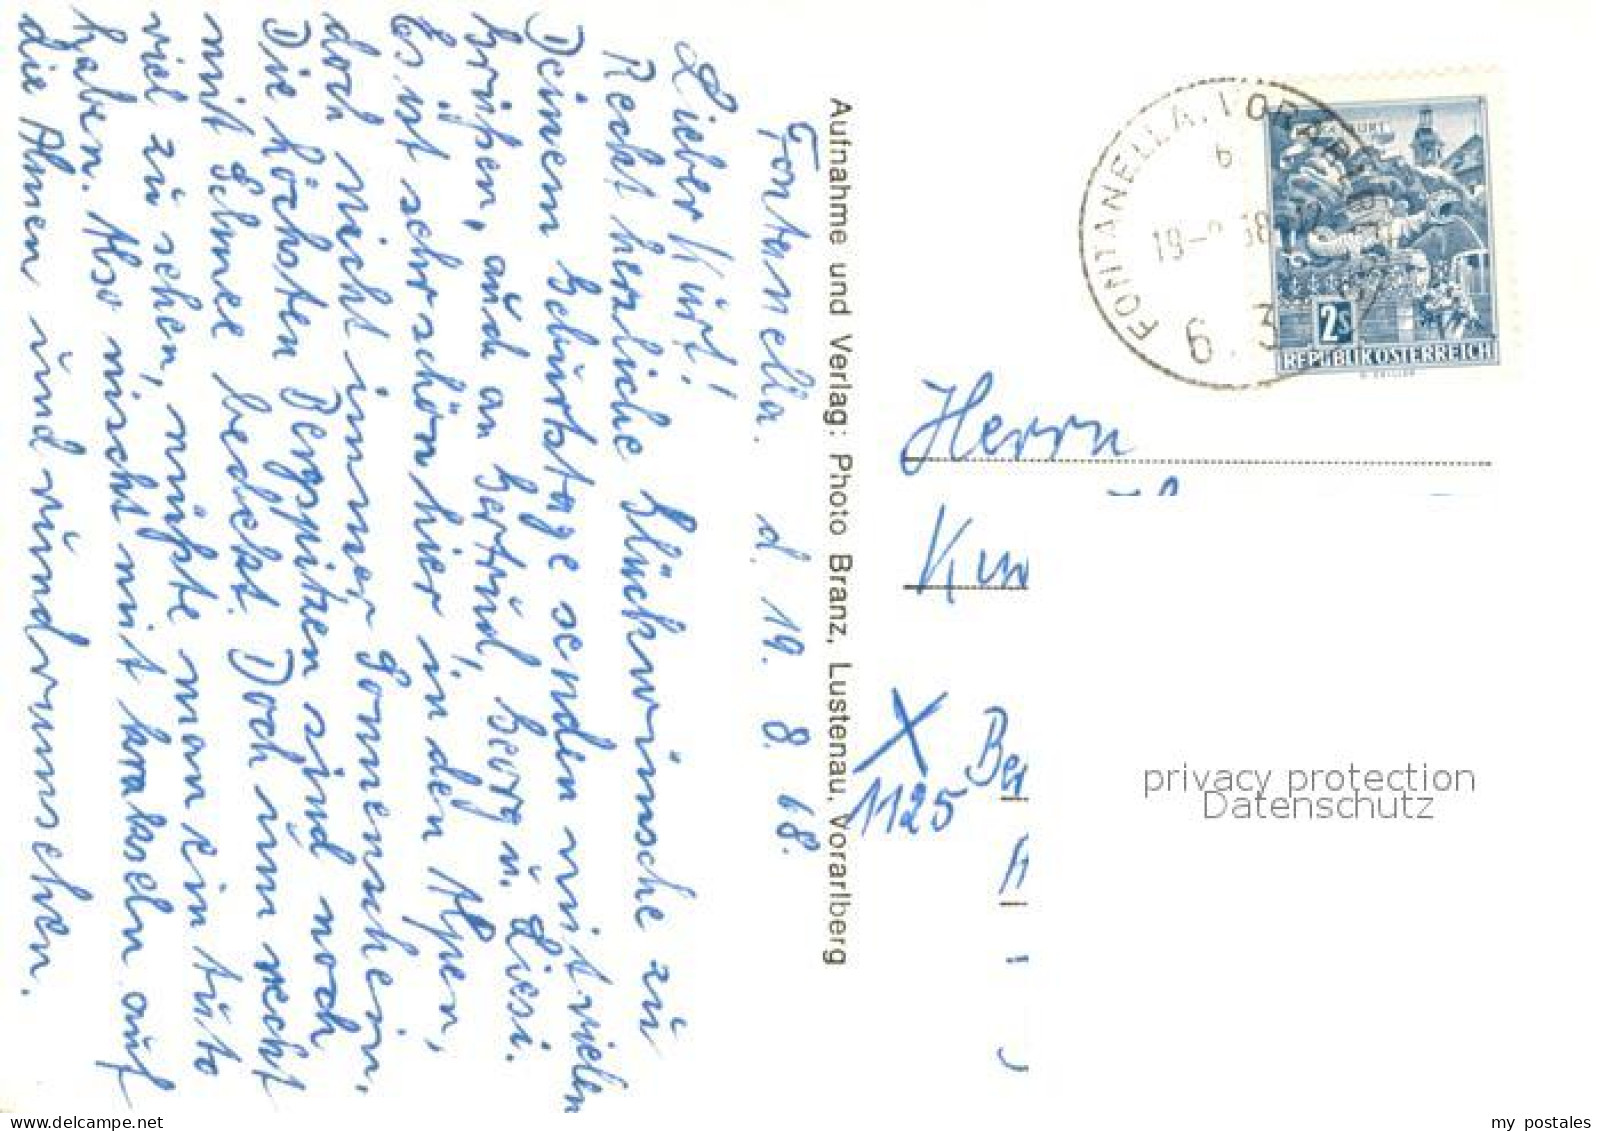 Fontanella. d. 19. 8. 68.
Lieber Kurt!
Recht herzliche Glückwünsche zu
Deinem Geburtstage senden mit vielen
Grüßen, auch an Gertrud, Georg u. Liesi.
Es ist sehr schön hier in den Alpen,
doch nicht immer Sonnenschein.
Die höchsten Bergspitzen sind noch
mit Schnee bedeckt. Doch um recht
viel zu sehen, müßte man ein Auto
haben. Also nischt mit krakseln auf
die Almen und rundrumsehen.
Aufnahme und Verlag: Photo Branz, Lustenau, Vorarlberg
FONTANELLA, VORARLBERG
6
19-8 68
6.3
2S
REPUBLIK ÖSTERREICH
Herrn
Kur
X
1125 Ber
privacy protection
Datenschutz
my postales